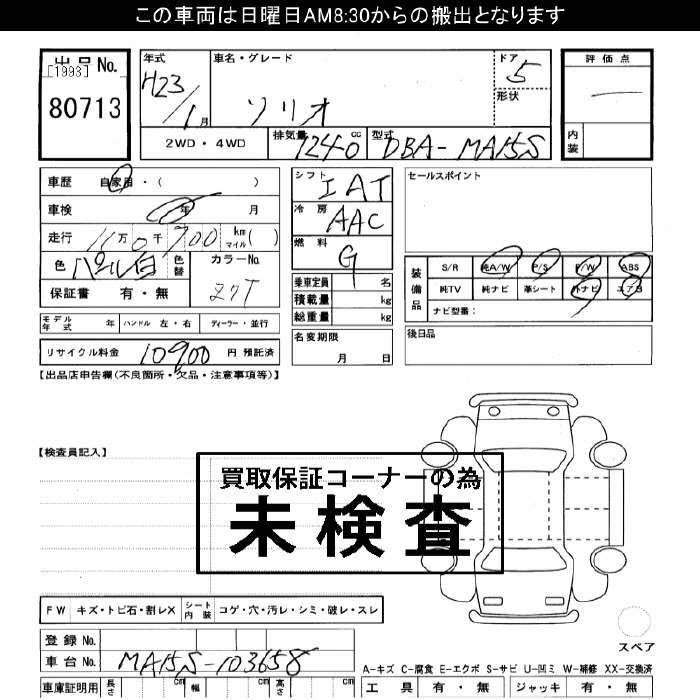 この車両は日曜日AM8:30からの搬出となります
出品No.
[1993]
80713
年式 H23/1月
車名・グレード ソリオ
ドア 5
形状
2WD・4WD 排気量 1240 cc 型式 DBA-MA15S
評価点
内装
車歴 自家用・( )
車検 年 月
走行 11万0千700 km マイル( )
色 パール白 色替 カラーNo. ZQT
保証書 有・無
シフト IAT
冷房 AAC
燃料 G
乗車定員 名
積載量 kg
総重量 kg
セールスポイント
装備品 S/R 純A/W P/S P/W ABS
純TV 純ナビ 革シート 外ナビ エアB
ナビ型番:
モデル年式 年 ハンドル 左・右 ディーラー・並行
名変期限 月 日
後日品
リサイクル料金 10900 円 預託済
【出品店申告欄(不良箇所・欠品・注意事項等)】
【検査員記入】
買取保証コーナーの為
未検査
FW キズ・トビ石・割レX シート内装 コゲ・穴・汚レ・シミ・破レ・スレ
登録No.
車台No. MA15S-103658
スペア
A-キズ C-腐食 E-エクボ S-サビ U-凹ミ W-補修 XX-交換済
車庫証明用 長さ cm 幅 cm 高さ cm
工具 有・無 ジャッキ 有・無